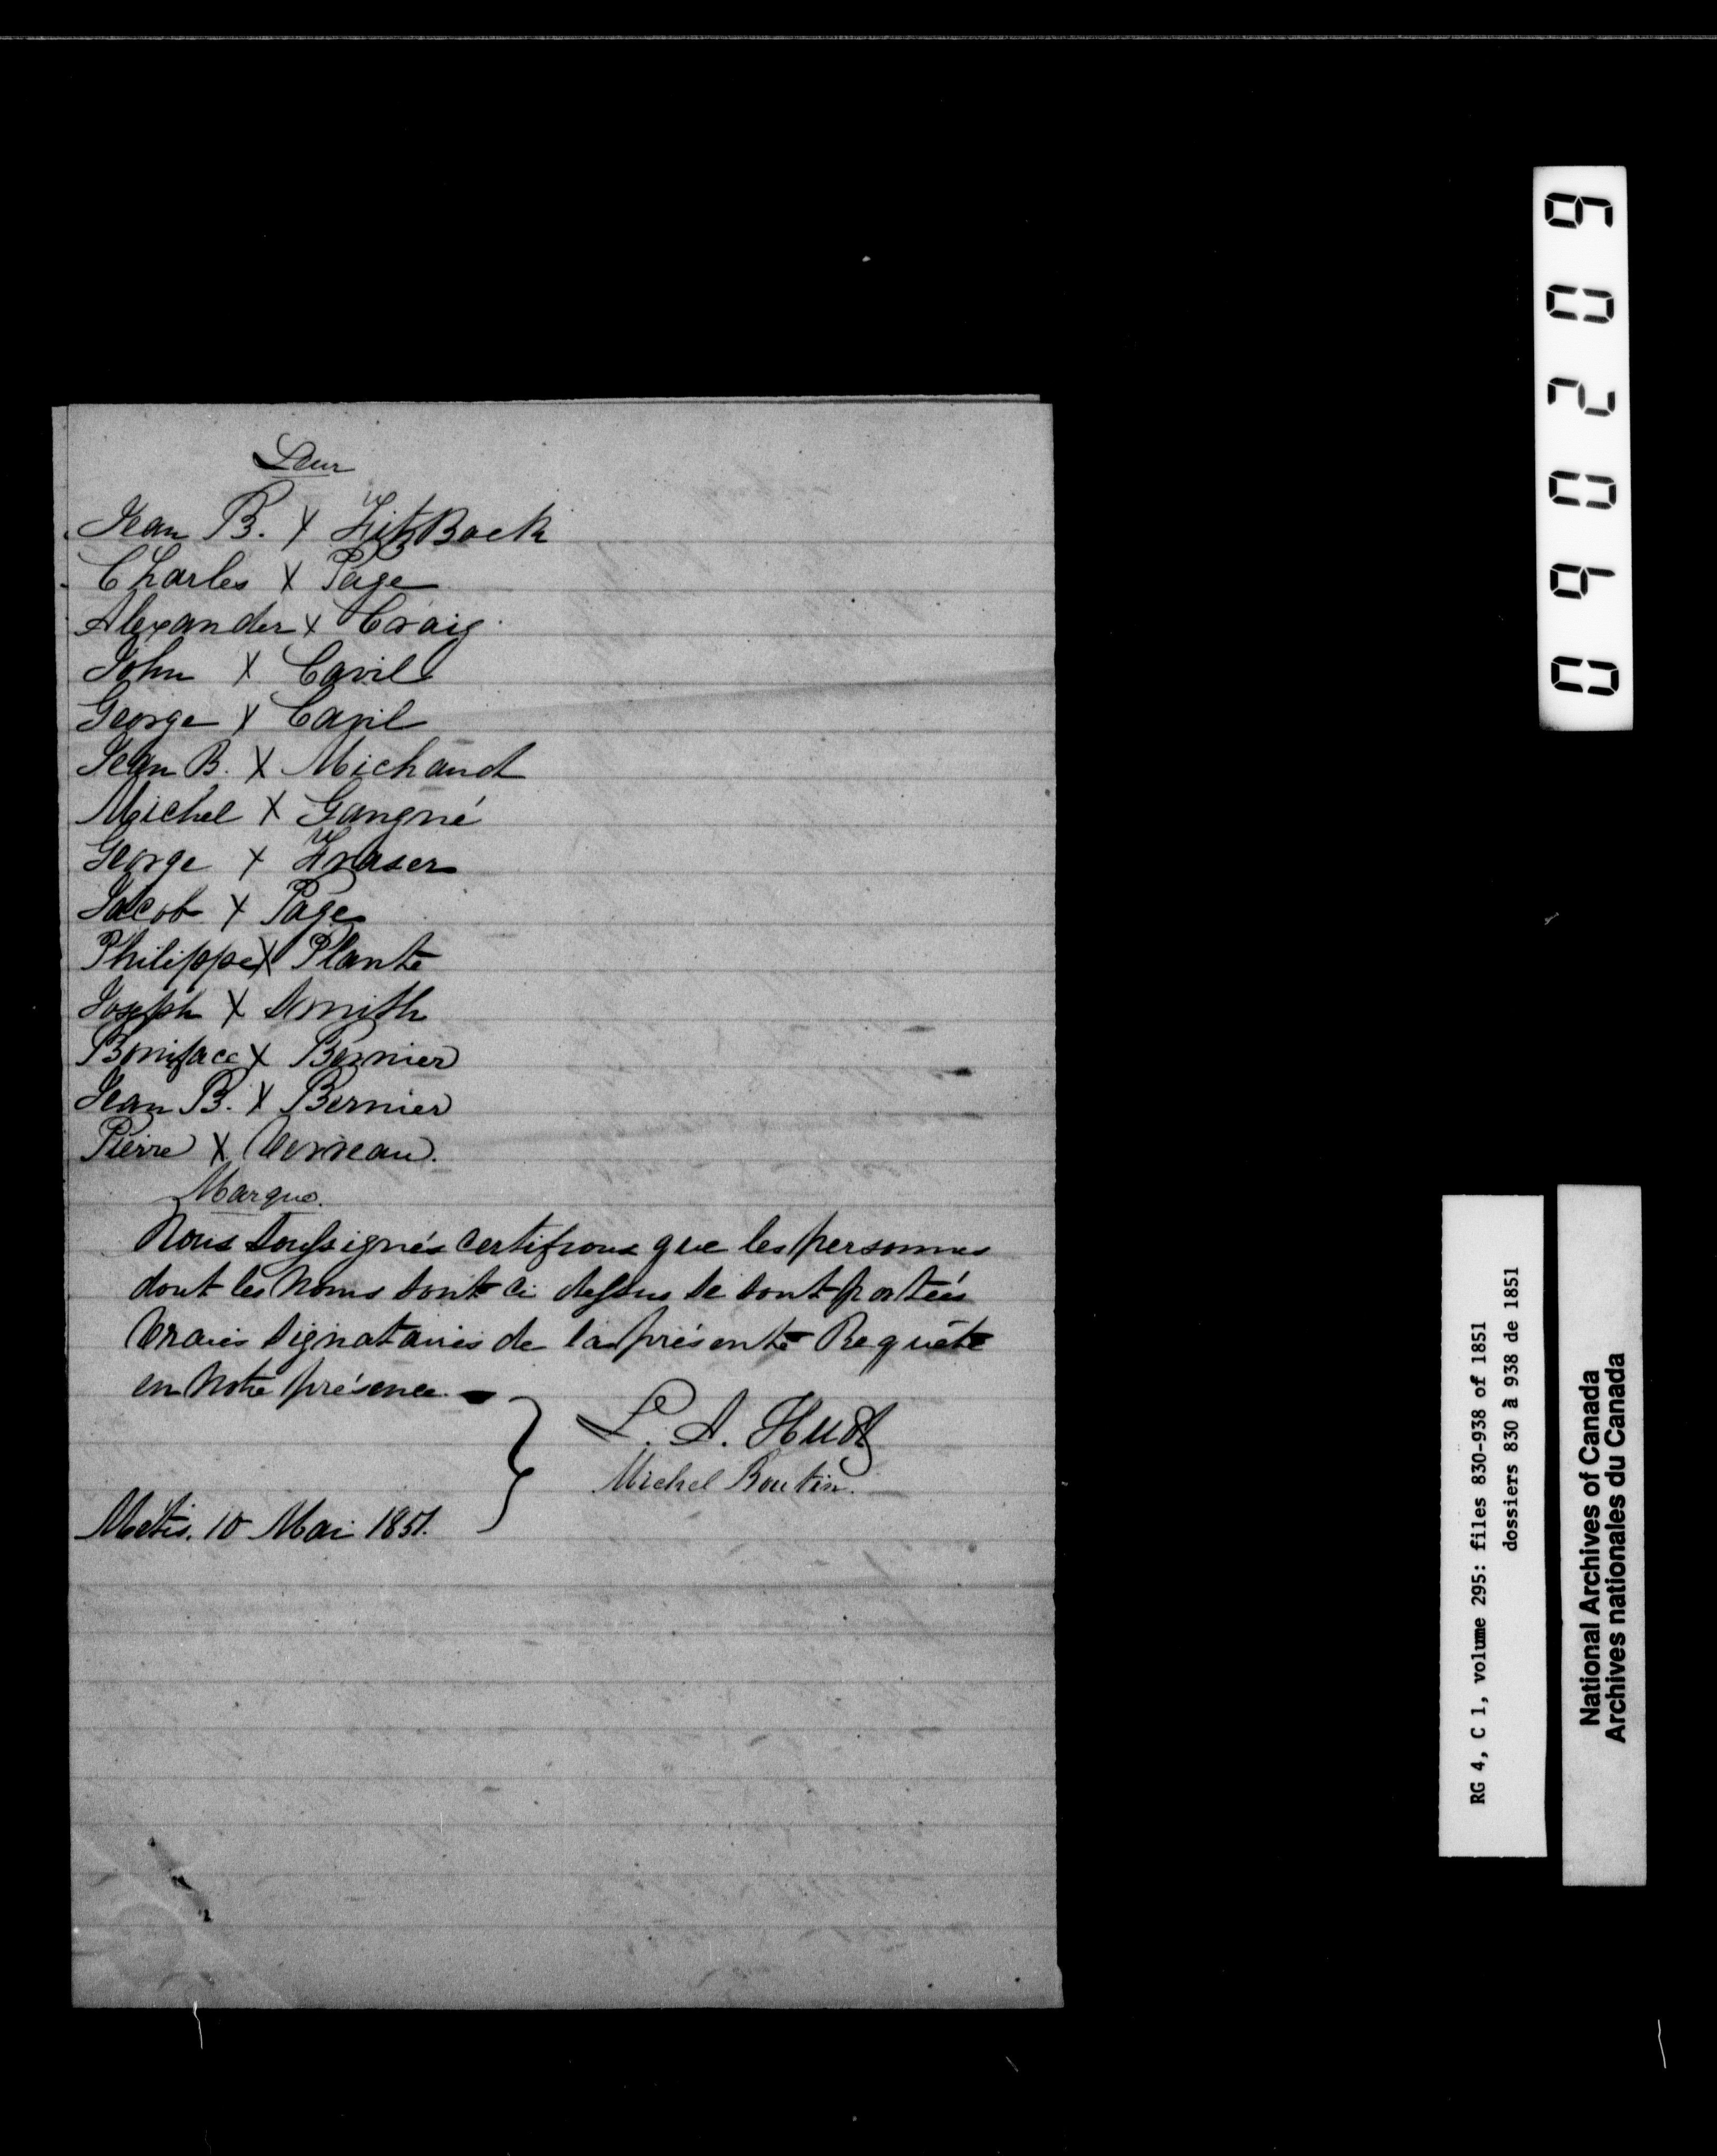 Leur
Jean B. X FitzBack
Charles X Page
Alexander X Craig
John X Cavil
George X Cavil
Jean B. X Michaud
Michel X Gangné
George X Fraser
Jacob X Page
Philippe X Plante
Joseph X Smith
Boniface X Bernier
Jean B. X Bernier
Pierre X Verreau.
Marque.
Nous soussignés certifions que les personnes
dont les noms sont ci dessus se sont portées
vraies signataires de la présente Requête
en notre présence.
L. A. Hudz
Michel Boutin.
Metis. 10 Mai 1851.
090209
RG 4, C 1, volume 295: files 830-938 of 1851
dossiers 830 à 938 de 1851
National Archives of Canada
Archives nationales du Canada